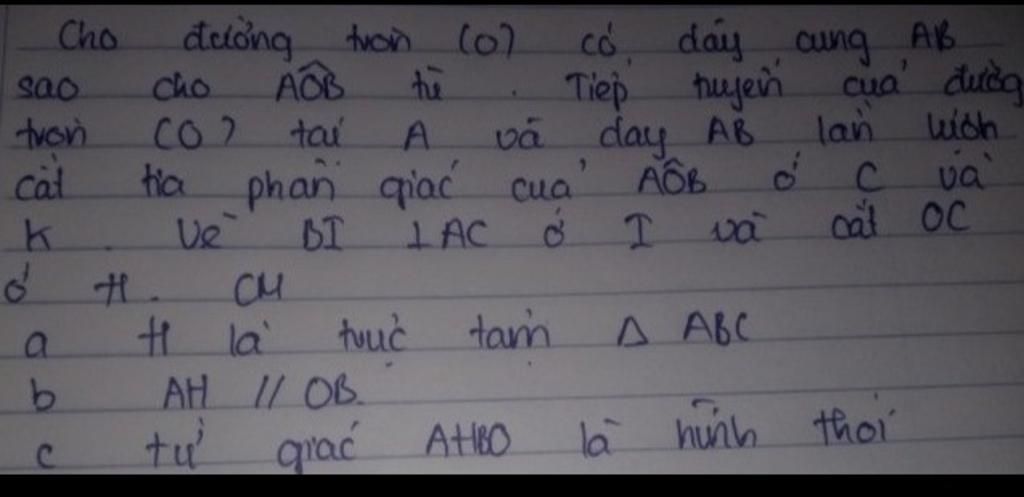 Cho đường tròn (O) có dây cung AB
sao cho AÔB tù . Tiếp tuyến của đường
tròn (O) tại A và dây AB lần lượt
cắt tia phân giác của AÔB ở C và
K . Vẽ BI ⊥ AC ở I và cắt OC
ở H . CM
a H là trực tâm Δ ABC
b AH // OB.
c tứ giác AHBO là hình thoi